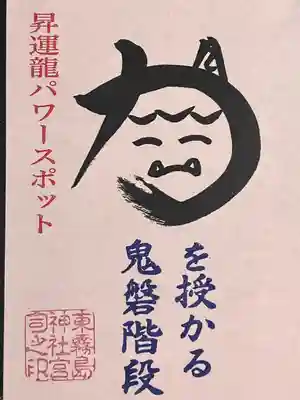 力
を授かる
鬼磐階段
昇運龍パワースポット
東霧島
神社宮
司之印